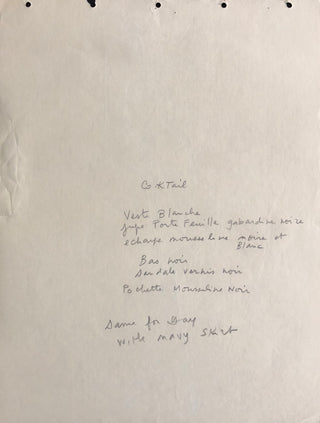 CokTail
Veste Blanche
jupe Porte Feuille gabardine noire
echarpe mousseline noire et
Blanc
Bas noir
Sandale vernis noir
Pochette Mousseline Noir
Same for Day
With navy Skirt